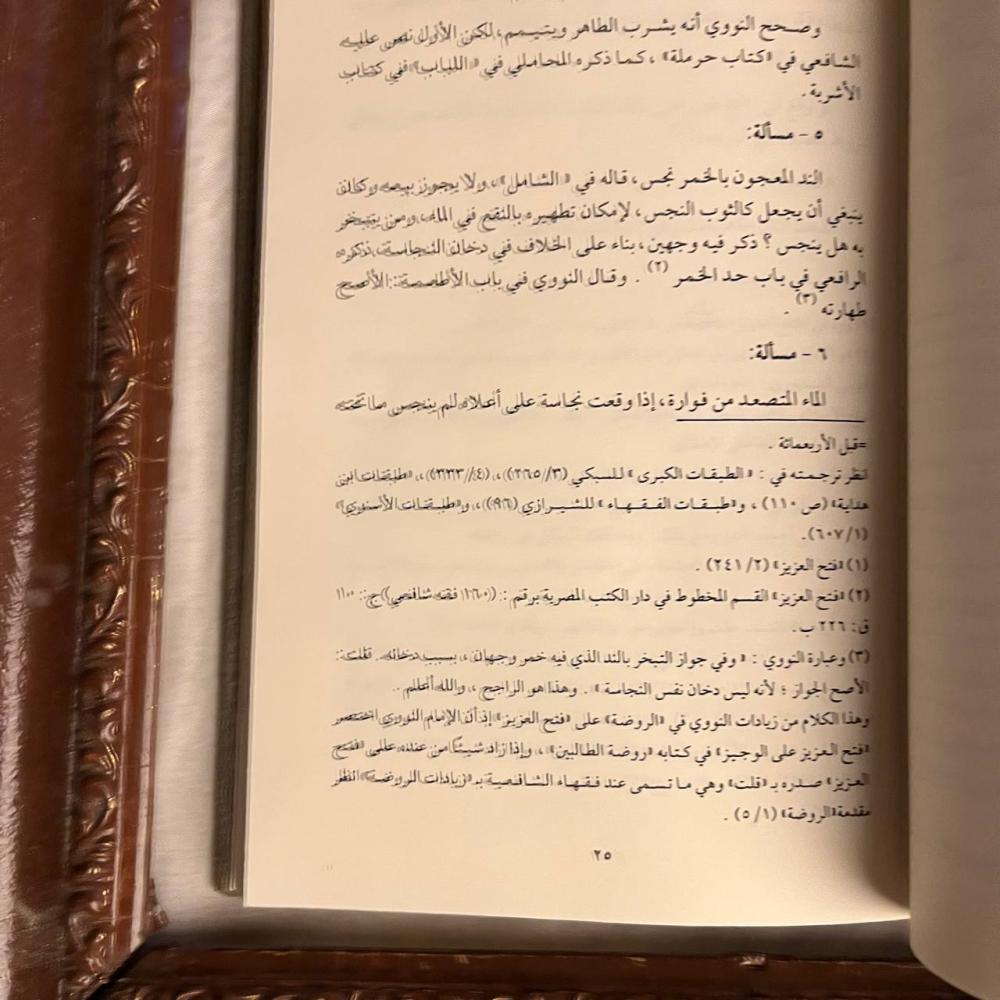 وصحح النووي أنه يشرب الطاهر ويتيمم، لكن الأول نص عليه
الشافعي في «كتاب حرملة»، كما ذكره المحاملي في «اللباب» في كتاب
الأشربة.
٥ - مسألة:
الند المعجون بالخمر نجس، قاله في «الشامل»، ولا يجوز بيعه وكان
ينبغي أن يجعل كالثوب النجس، لإمكان تطهيره بالنقع في الماء، ومن يتبخر
به هل ينجس؟ ذكر فيه وجهين، بناء على الخلاف في دخان النجاسة، ذكره
الرافعي في باب حد الخمر (٢). وقال النووي في باب الأطعمة: الأصح
طهارته (٣).
٦ - مسألة:
الماء المتصعد من فوارة، إذا وقعت نجاسة على أعلاه لم ينجس ما تحته
=قبل الأربعمائة.
انظر ترجمته في: «الطبقات الكبرى» للسبكي (٣/٢٦٥)، (٤/٣٣٣)، «طبقات ابن
هداية» (ص ١١٠)، و«طبقات الفقهاء» للشيرازي (٩٦)، و«طبقات الأسنوي»
(١/٦٠٧).
(١) «فتح العزيز» (٢/٢٤١).
(٢) «فتح العزيز» القسم المخطوط في دار الكتب المصرية برقم: (١٢٦٠ فقه شافعي) ج: ١١
ق: ٢٢٦ ب.
(٣) وعبارة النووي: «وفي جواز التبخر بالند الذي فيه خمر وجهان، بسبب دخانه. قلت:
الأصح الجواز؛ لأنه ليس دخان نفس النجاسة». وهذا هو الراجح، والله أعلم.
وهذا الكلام من زيادات النووي في «الروضة» على «فتح العزيز» إذ أن الإمام النووي اختصر
«فتح العزيز على الوجيز» في كتابه «روضة الطالبين»، وإذا زاد شيئًا من عنده على «فتح
العزيز» صدره بـ «قلت» وهي ما تسمى عند فقهاء الشافعية بـ «زيادات الروضة» انظر
مقدمة «الروضة» (١/٥).
٢٥